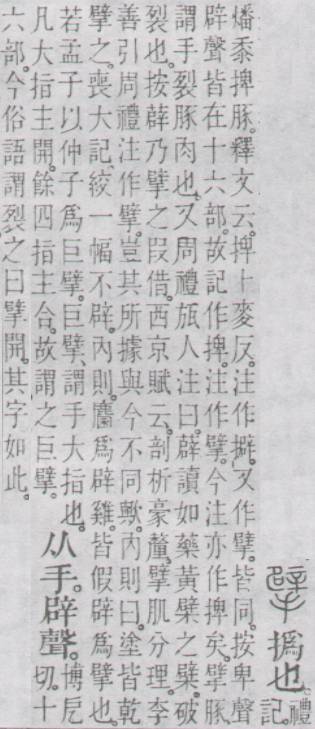 擘 撝也。禮
記
燔黍捭豚。釋文云。捭卜麥反。注作擗。又作擘。皆同。按卑聲
辟聲皆在十六部。故記作捭。注作擘。今注亦作捭矣。擘豚
謂手裂豚肉也。又周禮瓬人注曰。薜讀如藥黃檗之檗。破
裂也。按薜乃擘之叚借。西京賦云。剖析豪釐。擘肌分理。李
善引周禮注作擘。豈其所據與今不同歟。內則曰。塗皆乾
擘之。喪大記。絞一幅不辟。內則。麕爲辟雞。皆假辟爲擘也。
若孟子以仲子爲巨擘。巨擘、謂手大指也。
凡大指主開。餘四指主合。故謂之巨擘。
从手。辟聲。博戹
切。十
六部。今俗語謂裂之曰擘開。其字如此。